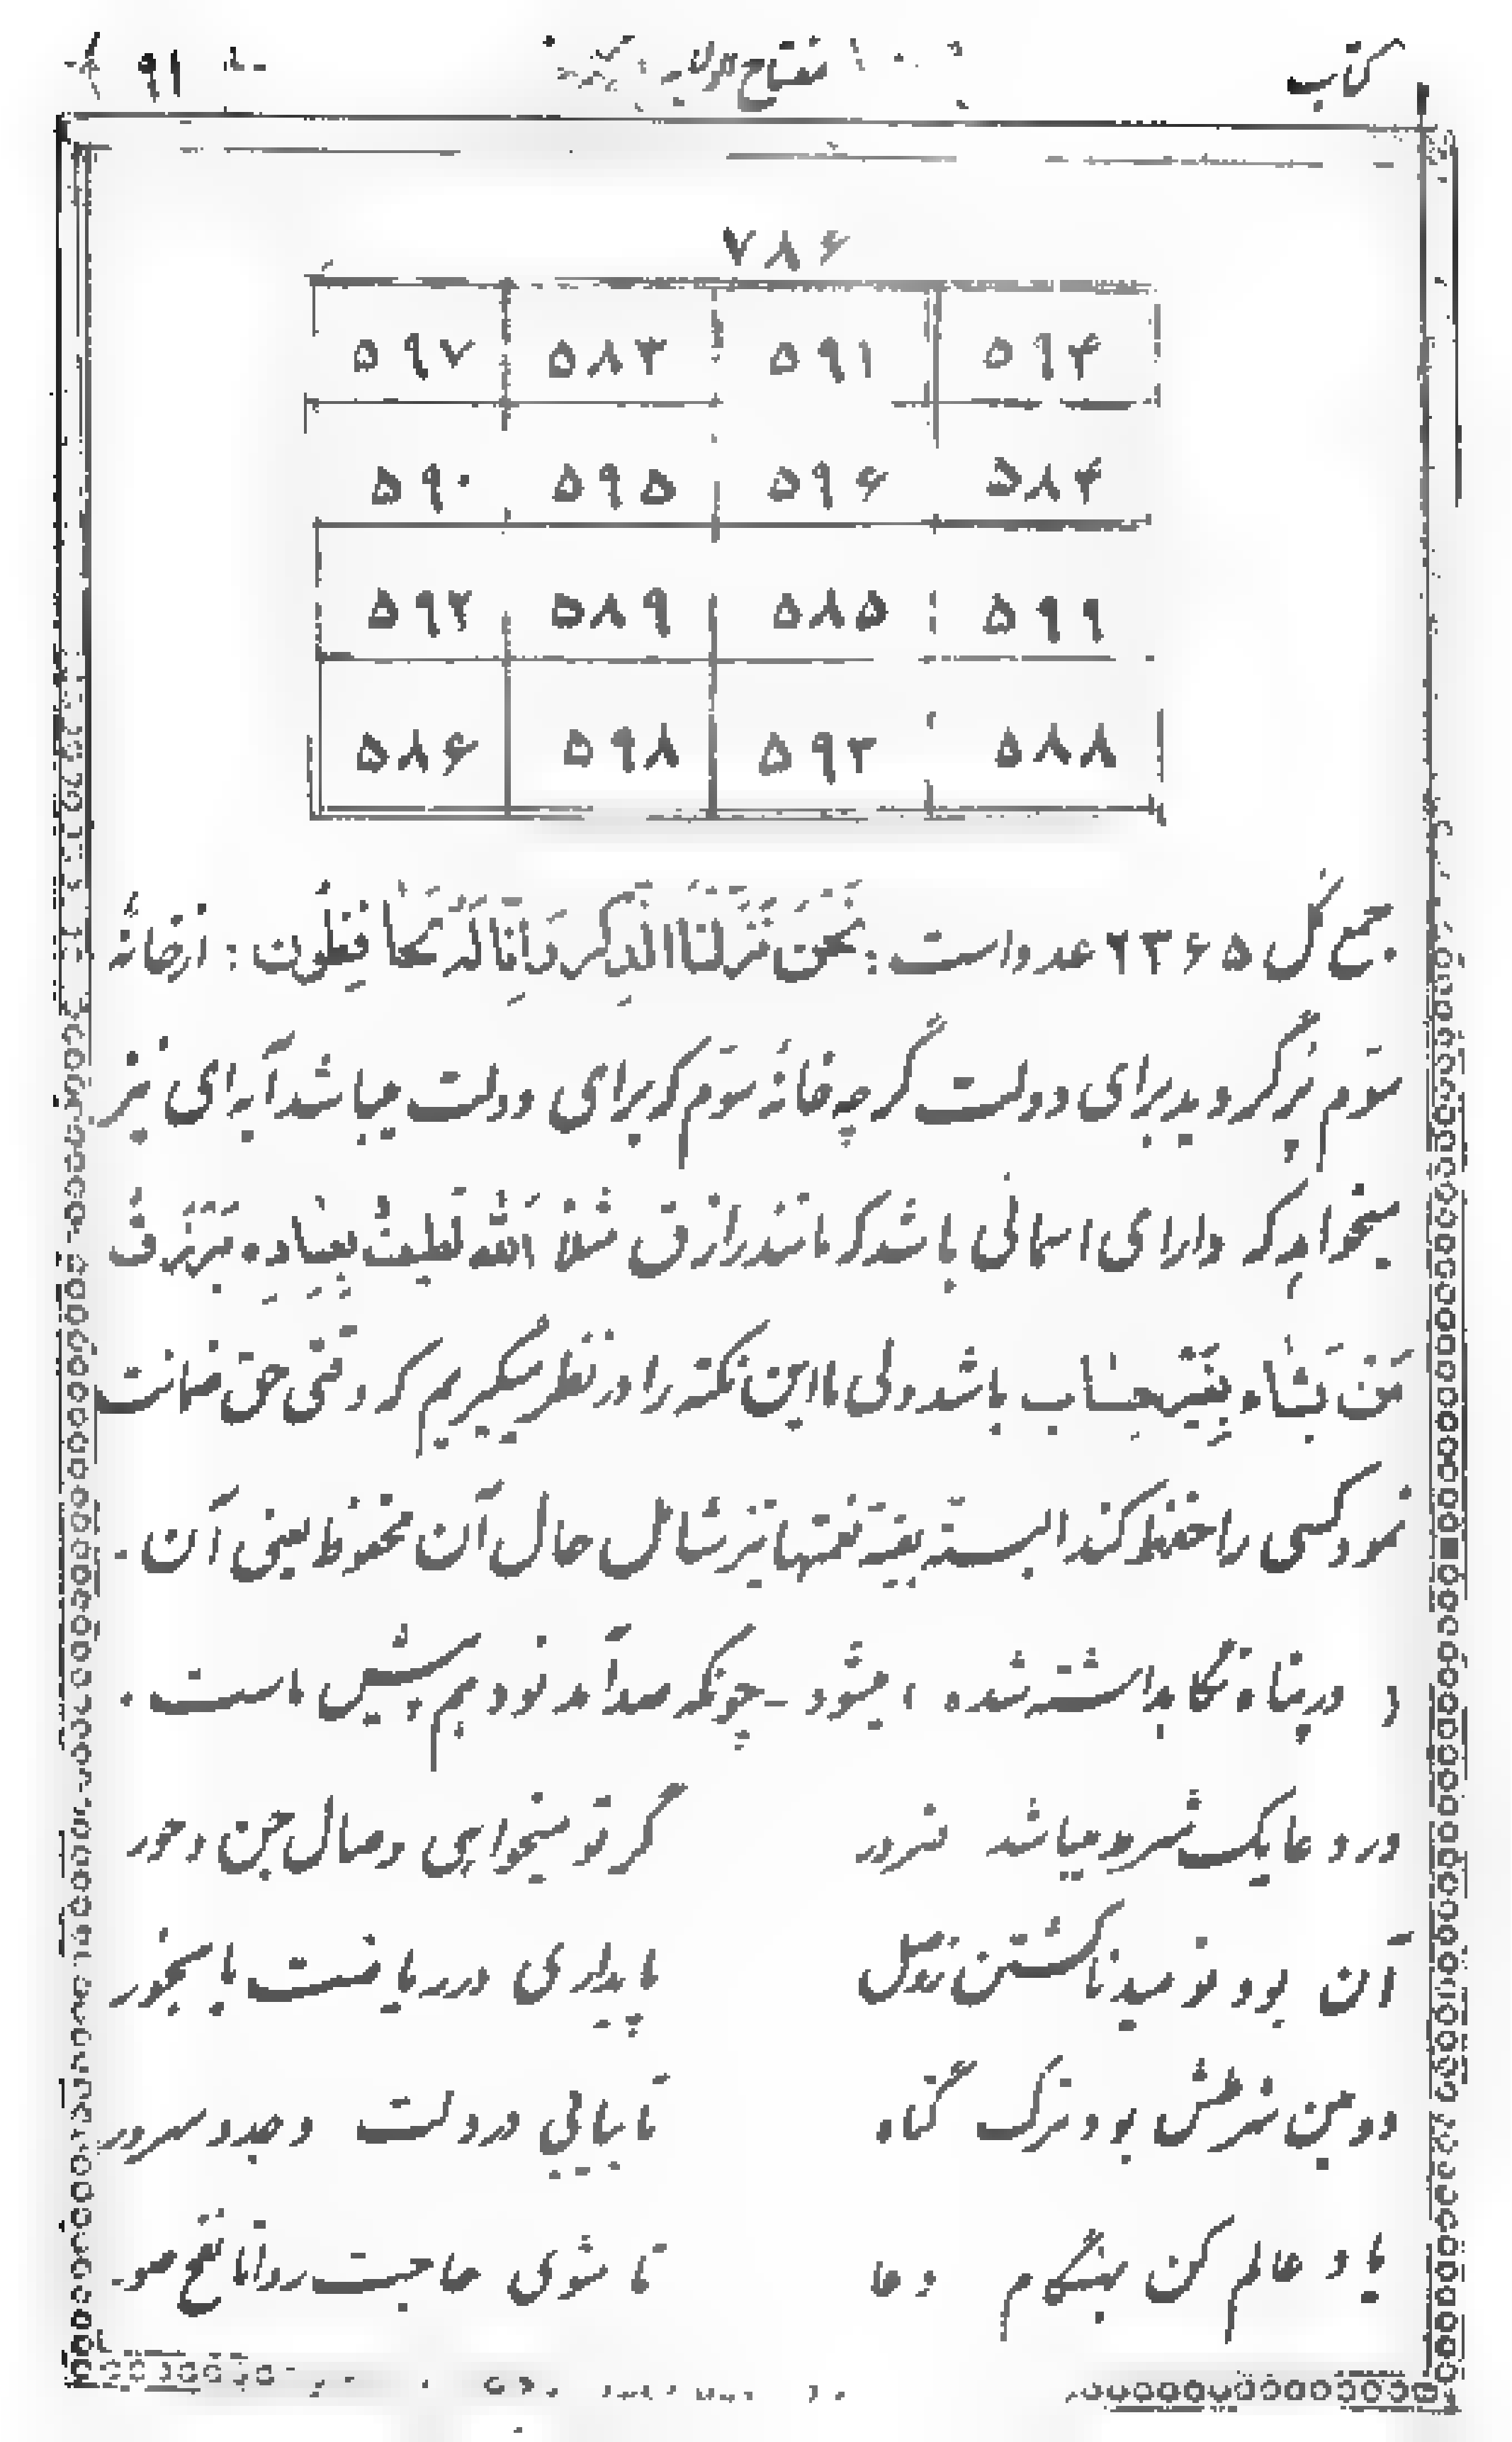 کتاب مفتاح الولایه ۹۱
۷۸۶
۵۹۷ ۵۸۳ ۵۹۱ ۵۹۴
۵۹۰ ۵۹۵ ۵۹۶ ۵۸۴
۵۹۲ ۵۸۹ ۵۸۵ ۵۹۹
۵۸۶ ۵۹۸ ۵۹۳ ۵۸۸
جمع کل ۲۳۶۵ عدد است : نَحْنُ نَزَّلْنَا الذِّکْرَ وَ اِنّا لَهُ لَحافِظُون : از خانه
سوّم پر گردید برای دولت گرچه خانه سوّم که برای دولت میباشد آیه ای نیز
میخواهد که دارای اسمائی باشد که مانند رازق مثلاً اَللّه لَطیفٌ بِعِبادِه یَرْزُقُ
مَنْ یَشاء بِغَیْرِ حِساب باشد ولی ما این نکته را در نظر میگیریم که وقتی حق ضمانت
نمود کسی را حفظ کند البته بقیّه نعمتها نیز شامل حال آن محفوظ یعنی آن
( در پناه نگاهداشته شده ) میشود - چونکه صد آمد نود هم پیش ماست .
در دعا یک شرط میباشد ضرور گر تو میخواهی وصال جن و حور
آن بود نومید ناگشتن ز دل پایداری در ریاضت با بخور
دومین شرطش بود ترک گناه تا بیابی در دولت وجد و سرور
یاد عالم کن بهنگام دعا تا شوی حاجت روا تا نفخ صور